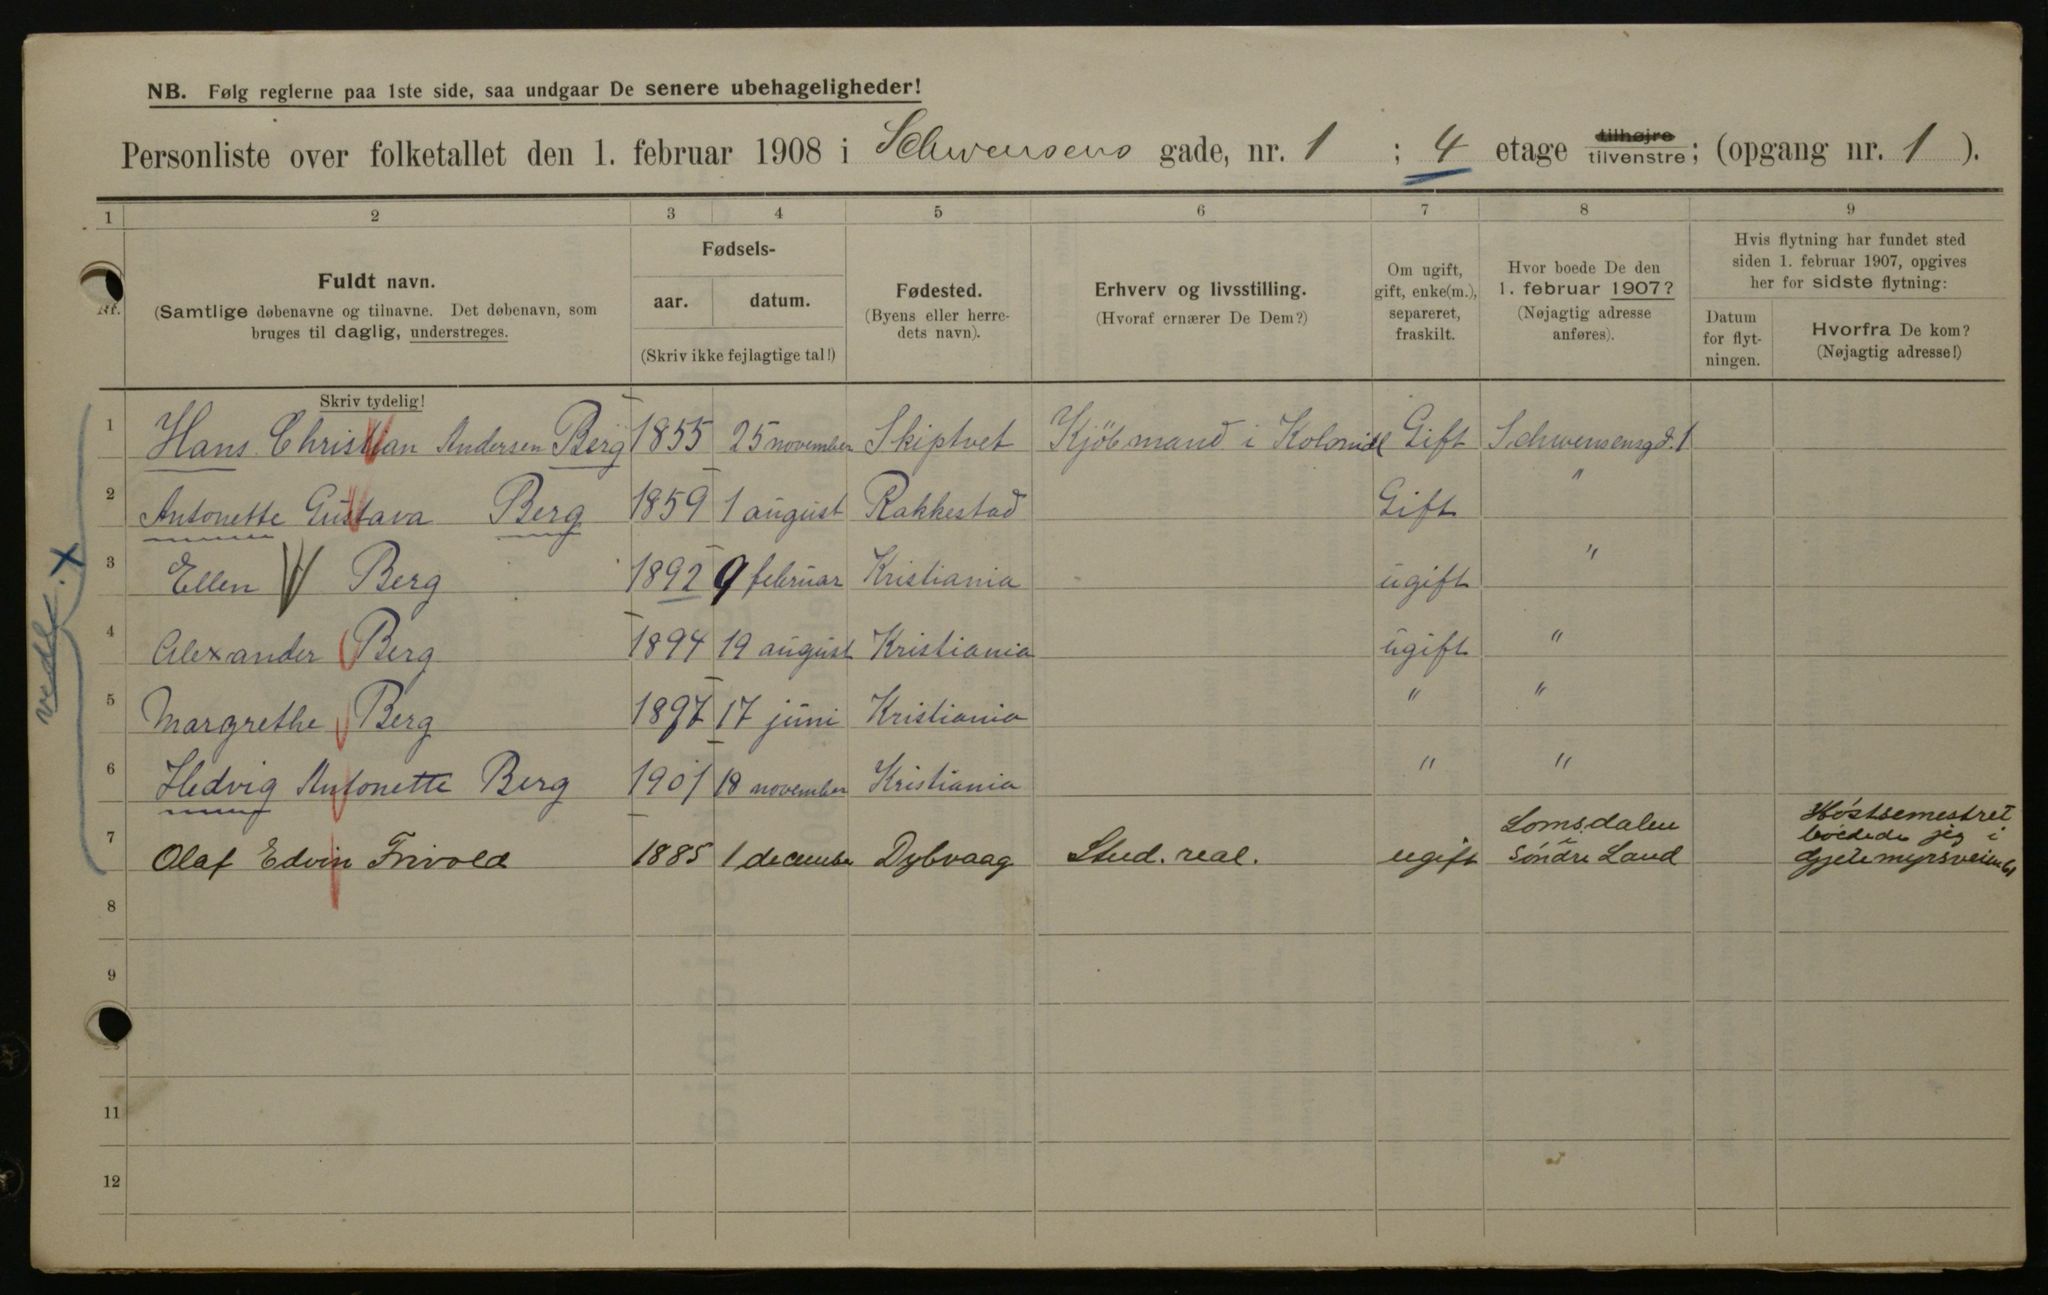 NB. Følg reglerne paa 1ste side, saa undgaar De senere ubehageligheder!
Personliste over folketallet den 1. februar 1908 i Schwensens gade, nr. 1 ; 4 etage tilhøjre/tilvenstre; (opgang nr. 1 ).
1 2 3 4 5 6 7 8 9
Nr.
Fuldt navn.
(Samtlige døbenavne og tilnavne. Det døbenavn, som
bruges til daglig, understreges.
Skriv tydelig!
Fødsels-
aar. datum.
(Skriv ikke fejlagtige tal!)
Fødested.
(Byens eller herre-
dets navn).
Erhverv og livsstilling.
(Hvoraf ernærer De Dem?)
Om ugift,
gift, enke(m.),
separeret,
fraskilt.
Hvor boede De den
1. februar 1907?
(Nøjagtig adresse
anføres).
Hvis flytning har fundet sted
siden 1. februar 1907, opgives
her for sidste flytning:
Datum
for flyt-
ningen.
Hvorfra De kom?
(Nøjagtig adresse!)
1 Hans Christian Andersen Berg 1855 25 november Skiptvet Kjöbmand i Kolonial Gift Schwensensgd. 1
2 Antonette Gustava Berg 1859 1 august Rakkestad Gift "
3 Ellen Berg 1892 9 februar Kristiania ugift "
4 Alexander Berg 1894 19 august Kristiania ugift "
5 Margrethe Berg 1897 17 juni Kristiania " "
6 Hedvig Antonette Berg 1901 18 november Kristiania " "
7 Olaf Edvin Trivold 1885 1 december Dybvaag Stud. real. ugift Lomsdalen
Söndre Land
Höstsemestret
boede jeg i
Gjetemyrsveien 61
8
9
11
12